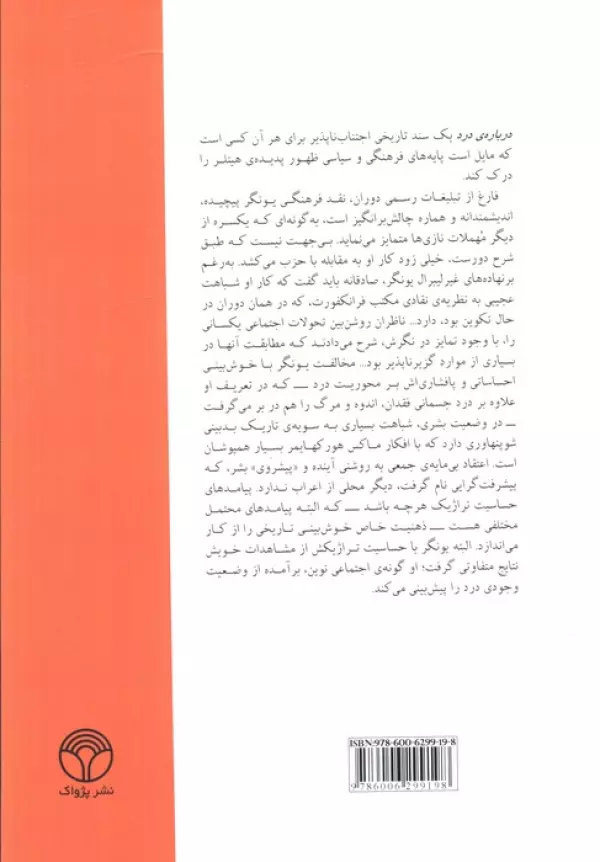 درباره‌ی درد یک سند تاریخی اجتناب‌ناپذیر برای هر آن کسی است
که مایل است پایه‌های فرهنگی و سیاسی ظهور پدیده‌ی هیتلر را
درک کند.
فارغ از تبلیغات رسمی دوران، نقد فرهنگی یونگر پیچیده،
اندیشمندانه و هماره چالش‌برانگیز است، به‌گونه‌ای که یکسره از
دیگر مُهملات نازی‌ها متمایز می‌نماید. بی‌جهت نیست که طبق
شرح دورست، خیلی زود کار او به مقابله با حزب می‌کشد. به‌رغم
برنهاده‌های غیرلیبرال یونگر، صادقانه باید گفت که کار او شباهت
عجیبی به نظریه‌ی نقادی مکتب فرانکفورت، که در همان دوران در
حال تکوین بود، دارد... ناظران روشن‌بین تحولات اجتماعی یکسانی
را، با وجود تمایز در نگرش، شرح می‌دادند که مطابقت آنها در
بسیاری از موارد گزیرناپذیر بود... مخالفت یونگر با خوش‌بینی
احساساتی و پافشاری‌اش بر محوریت درد ــــ که در تعریف او
علاوه بر درد جسمانی فقدان، اندوه و مرگ را هم در بر می‌گرفت
ــــ در وضعیت بشری، شباهت بسیاری به سویه‌ی تاریک بدبینی
شوپنهاوری دارد که با افکار ماکس هورکهایمر بسیار همپوشان
است. اعتقاد بی‌مایه‌ی جمعی به روشنی آینده و «پیشروی» بشر، که
پیشرفت‌گرایی نام گرفت، دیگر محلی از اعراب ندارد. پیامدهای
حساسیت تراژیک هرچه باشد ــــ که البته پیامدهای محتمل
مختلفی هست ــــ ذهنیت خاص خوش‌بینی تاریخی را از کار
می‌اندازد. البته یونگر با حساسیت تراژیکش از مشاهدات خویش
نتایج متفاوتی گرفت؛ او گونه‌ی اجتماعی نوین، برآمده از وضعیت
وجودی درد را پیش‌بینی می‌کند.
ISBN:978-600-6299-19-8
9786006299198
نشر پژواک